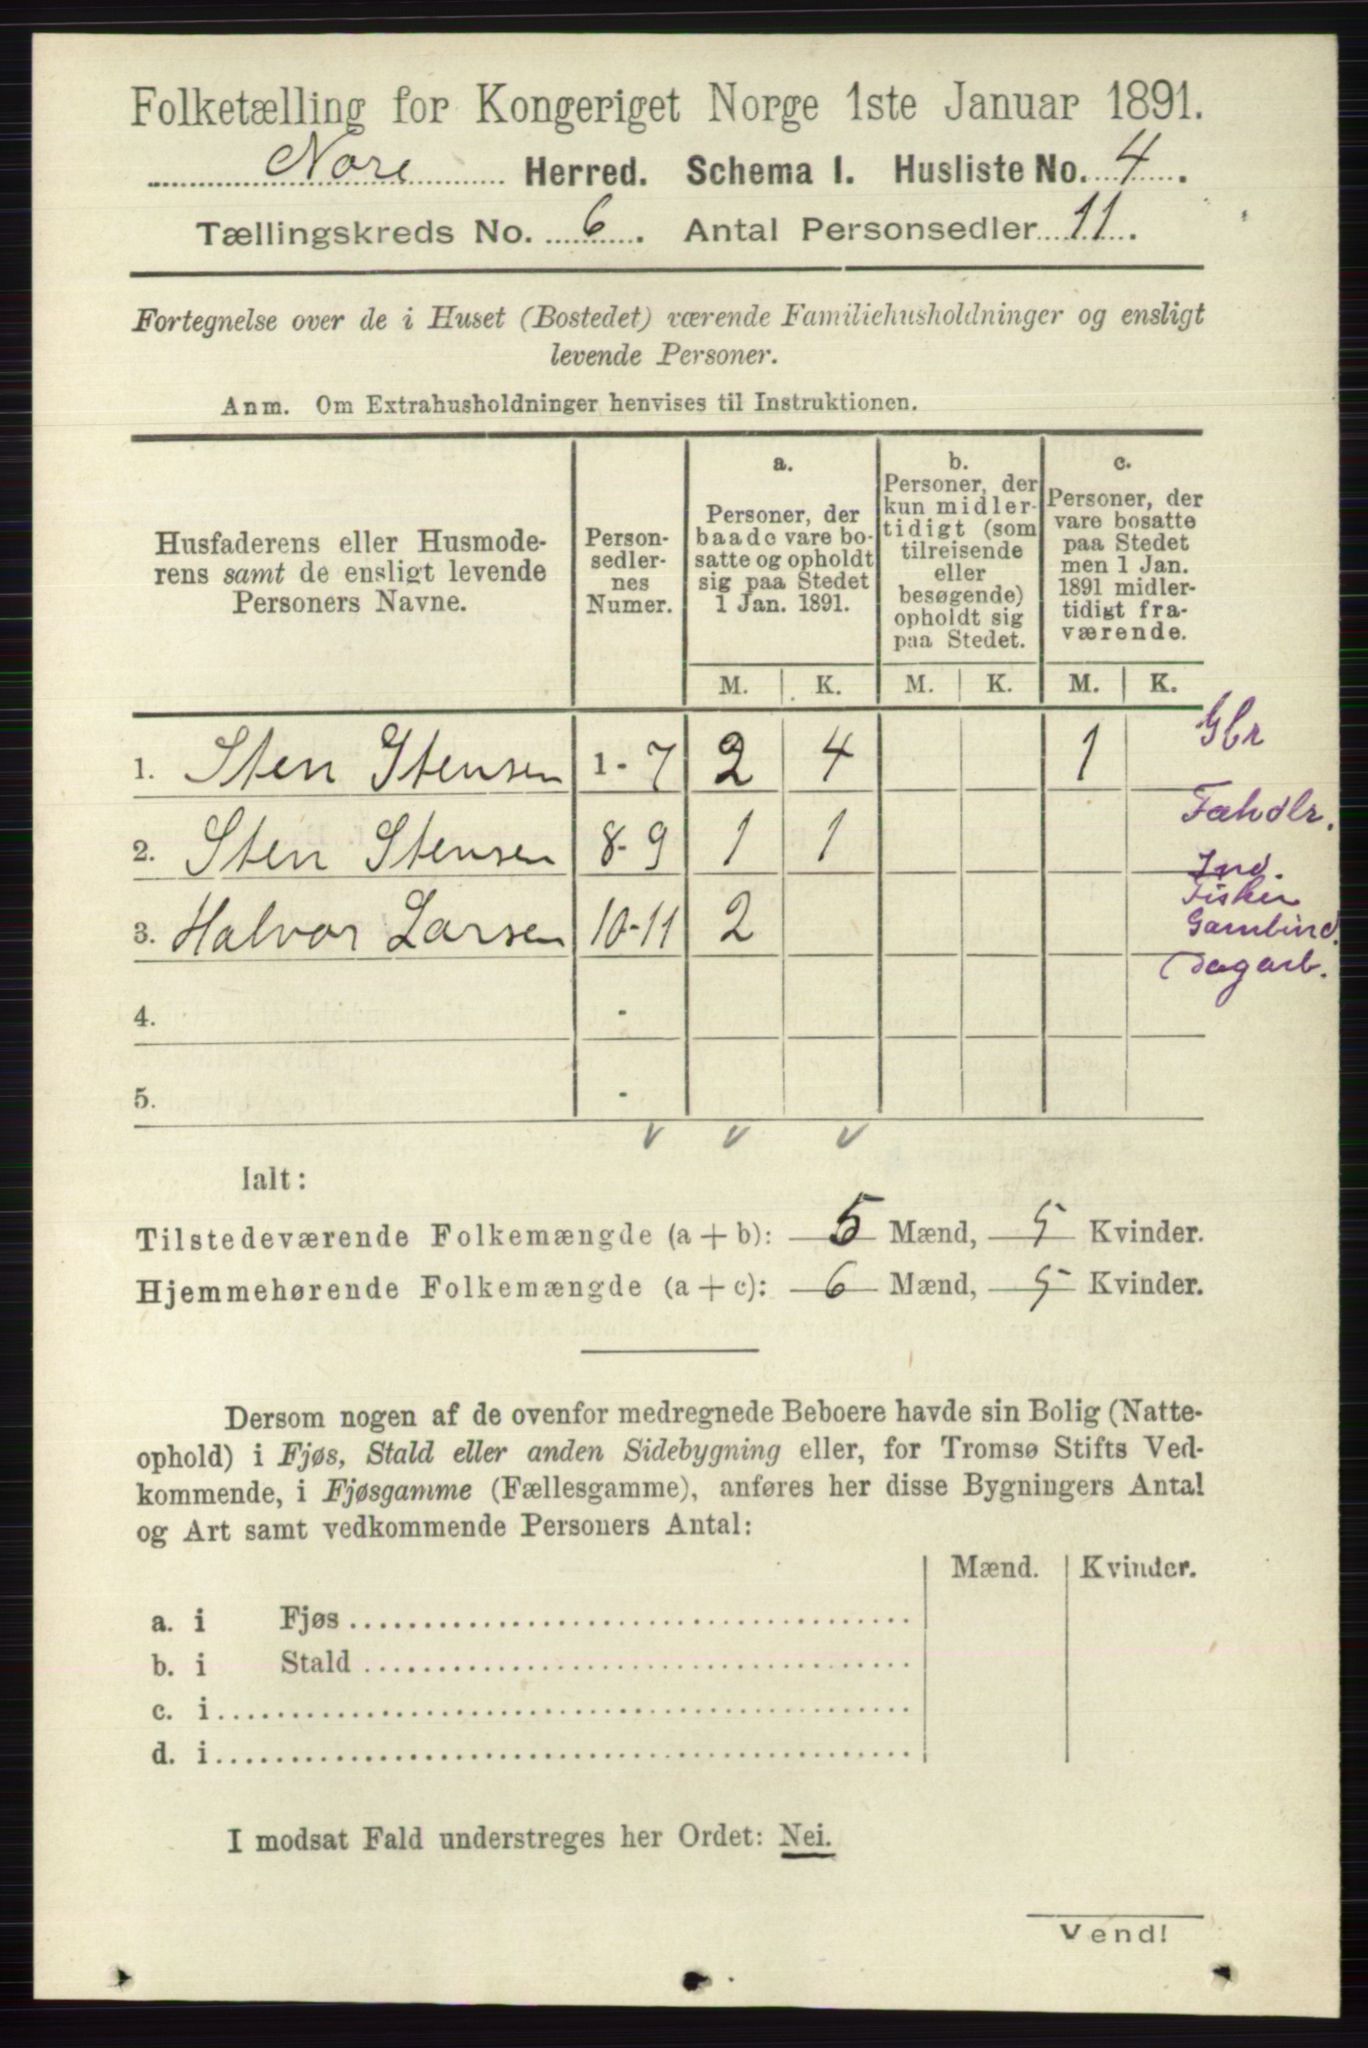 Folketælling for Kongeriget Norge 1ste Januar 1891.
Nore Herred. Schema I. Husliste No. 4.
Tællingskreds No. 6. Antal Personsedler 11.
Fortegnelse over de i Huset (Bostedet) værende Familiehusholdninger og ensligt
levende Personer.
Anm. Om Extrahusholdninger henvises til Instruktionen.
Husfaderens eller Husmode-
rens samt de ensligt levende
Personers Navne.
Person-
sedler-
nes
Numer.
a.
Personer, der
baade vare bo-
satte og opholdt
sig paa Stedet
1 Jan. 1891.
b.
Personer, der
kun midler-
tidigt (som
tilreisende
eller
besøgende)
opholdt sig
paa Stedet.
c.
Personer, der
vare bosatte
paa Stedet
men 1 Jan.
1891 midler-
tidigt fra-
værende.
M. K. M. K. M. K.
1. Sten Stensen 1-7 2 4 1 Gbr
2. Sten Stensen 8-9 1 1 Fæhdlr.
3. Halvor Larsen 10-11 2
Ind.
Fisker
Gaardbrud.
Dagarb.
4. -
5. -
Ialt:
Tilstedeværende Folkemængde (a + b): 5 Mænd, 5 Kvinder.
Hjemmehørende Folkemængde (a + c): 6 Mænd, 5 Kvinder.
Dersom nogen af de ovenfor medregnede Beboere havde sin Bolig (Natte-
ophold) i Fjøs, Stald eller anden Sidebygning eller, for Tromsø Stifts Ved-
kommende, i Fjøsgamme (Fællesgamme), anføres her disse Bygningers Antal
og Art samt vedkommende Personers Antal:
Mænd. Kvinder.
a. i Fjøs
b. i Stald
c. i
d. i
I modsat Fald understreges her Ordet: Nei.
Vend!